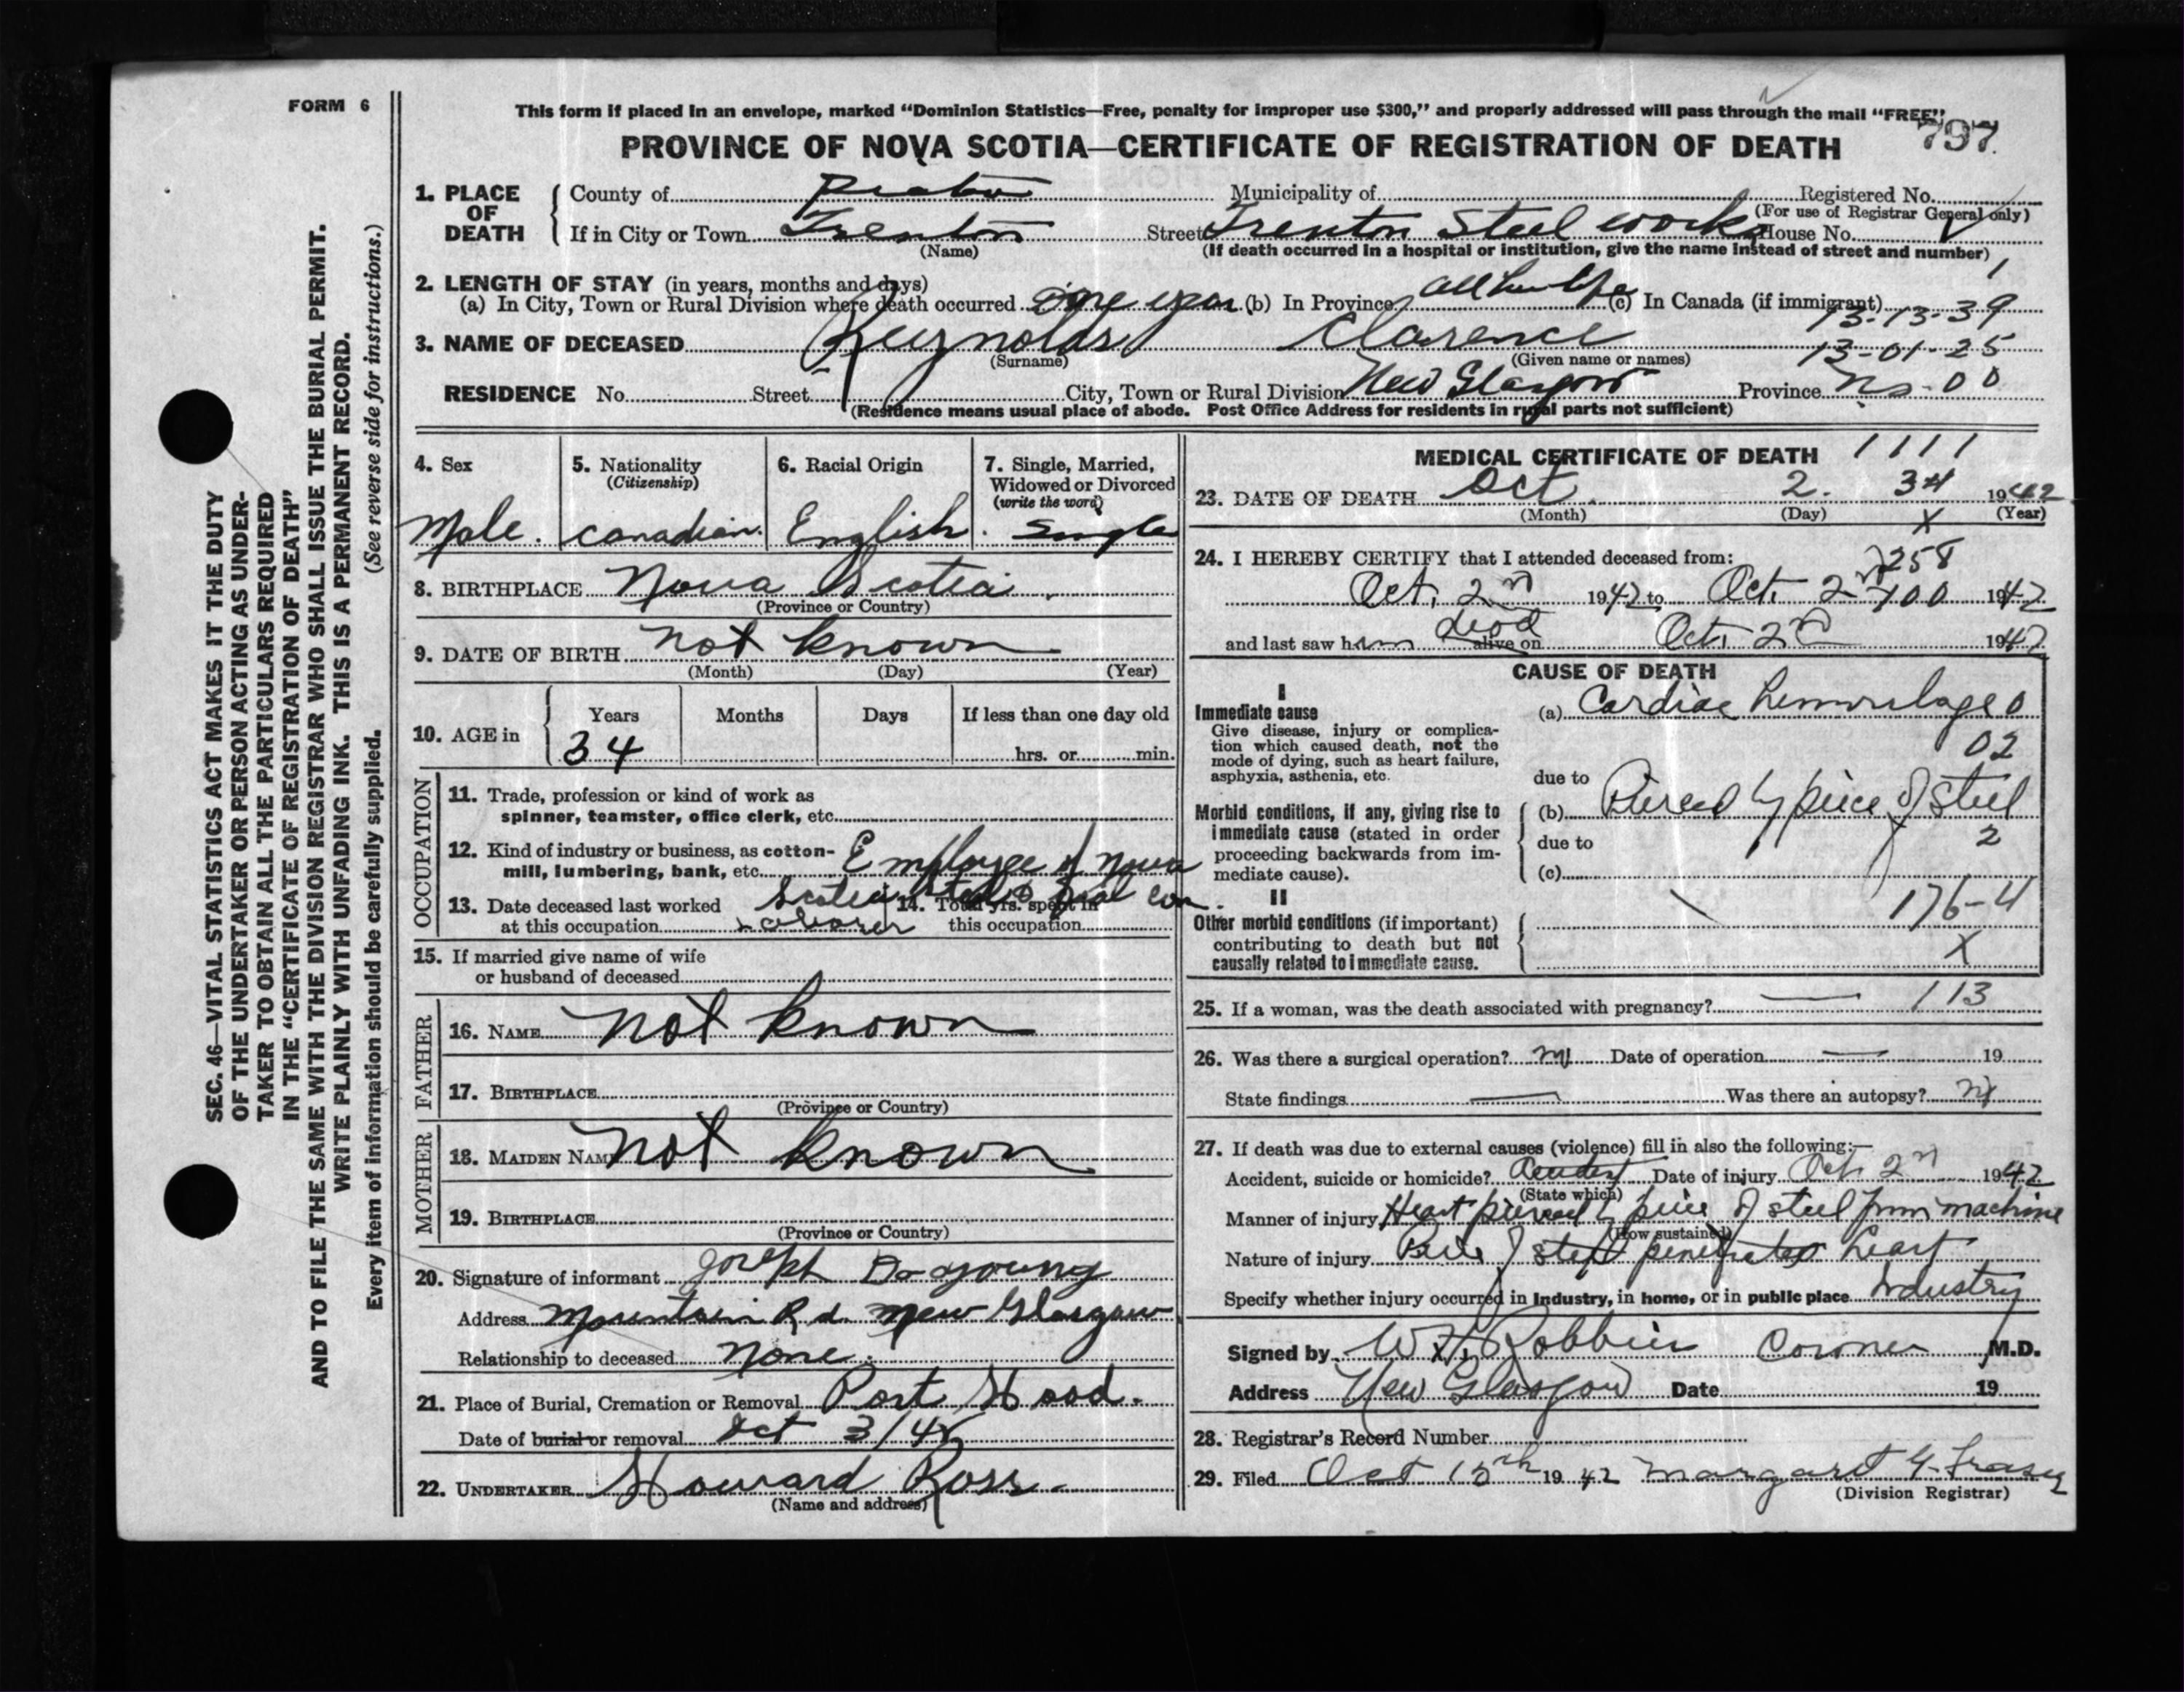 FORM 6
This form if placed in an envelope, marked “Dominion Statistics—Free, penalty for improper use $300,” and properly addressed will pass through the mail “FREE”
797
PROVINCE OF NOVA SCOTIA—CERTIFICATE OF REGISTRATION OF DEATH
1. PLACE OF DEATH
County of Pictou Municipality of Registered No.
(For use of Registrar General only)
If in City or Town Trenton Street Trenton Steel works House No.
(Name) (If death occurred in a hospital or institution, give the name instead of street and number)
2. LENGTH OF STAY (in years, months and days) 1
(a) In City, Town or Rural Division where death occurred one year (b) In Province all his life (c) In Canada (if immigrant)
13-13-39
3. NAME OF DECEASED Reynolds Clarence 13-01-25
(Surname) (Given name or names)
RESIDENCE No. Street City, Town or Rural Division New Glasgow Province N.S. - 00
(Residence means usual place of abode. Post Office Address for residents in rural parts not sufficient)
4. Sex 5. Nationality (Citizenship) 6. Racial Origin 7. Single, Married, Widowed or Divorced (write the word)
Male. Canadian. English. Single
8. BIRTHPLACE Nova Scotia.
(Province or Country)
9. DATE OF BIRTH not known
(Month) (Day) (Year)
10. AGE in Years Months Days If less than one day old
34 hrs. or min.
OCCUPATION
11. Trade, profession or kind of work as
spinner, teamster, office clerk, etc.
12. Kind of industry or business, as cotton-
mill, lumbering, bank, etc. Employee of Nova
Scotia Steel & Coal Con.
13. Date deceased last worked 14. Total yrs. spent in
at this occupation Laborer this occupation
15. If married give name of wife
or husband of deceased
FATHER
16. NAME not known
17. BIRTHPLACE
(Province or Country)
MOTHER
18. MAIDEN NAME not known
19. BIRTHPLACE
(Province or Country)
20. Signature of informant Joseph D. young
Address Mountain Rd. New Glasgow
Relationship to deceased None.
21. Place of Burial, Cremation or Removal Port Hood.
Date of burial or removal Oct 3/42
22. UNDERTAKER Howard Ross.
(Name and address)
MEDICAL CERTIFICATE OF DEATH 1111
23. DATE OF DEATH Oct. 2. 34 1942
(Month) (Day) X (Year)
24. I HEREBY CERTIFY that I attended deceased from:
258
Oct. 2nd 1942 to Oct. 2nd 100 1942
and last saw him dead alive on Oct. 2nd 1942
CAUSE OF DEATH
I
Immediate cause (a) Cardiac hemorrhage 0
Give disease, injury or complica-
tion which caused death, not the 02
mode of dying, such as heart failure,
asphyxia, asthenia, etc. due to
Morbid conditions, if any, giving rise to (b) Pierced by piece of steel
immediate cause (stated in order due to 2
proceeding backwards from im-
mediate cause). (c)
II
176-4
Other morbid conditions (if important)
contributing to death but not X
causally related to immediate cause.
25. If a woman, was the death associated with pregnancy? — 113
26. Was there a surgical operation? no Date of operation — 19
State findings — Was there an autopsy? no
27. If death was due to external causes (violence) fill in also the following:—
Accident, suicide or homicide? Accident Date of injury Oct. 2nd 1942
(State which)
Manner of injury Heart pierced by piece of steel from machine
(How sustained)
Nature of injury Piece of steel penetrated heart
Specify whether injury occurred in Industry, in home, or in public place Industry
Signed by Coroner M.D.
Address New Glasgow Date 19
28. Registrar's Record Number
29. Filed Oct 15th 1942 Margaret G. Fraser
(Division Registrar)
SEC. 46—VITAL STATISTICS ACT MAKES IT THE DUTY
OF THE UNDERTAKER OR PERSON ACTING AS UNDER-
TAKER TO OBTAIN ALL THE PARTICULARS REQUIRED
IN THE “CERTIFICATE OF REGISTRATION OF DEATH”
AND TO FILE THE SAME WITH THE DIVISION REGISTRAR WHO SHALL ISSUE THE BURIAL PERMIT.
WRITE PLAINLY WITH UNFADING INK. THIS IS A PERMANENT RECORD.
Every item of information should be carefully supplied. (See reverse side for instructions.)